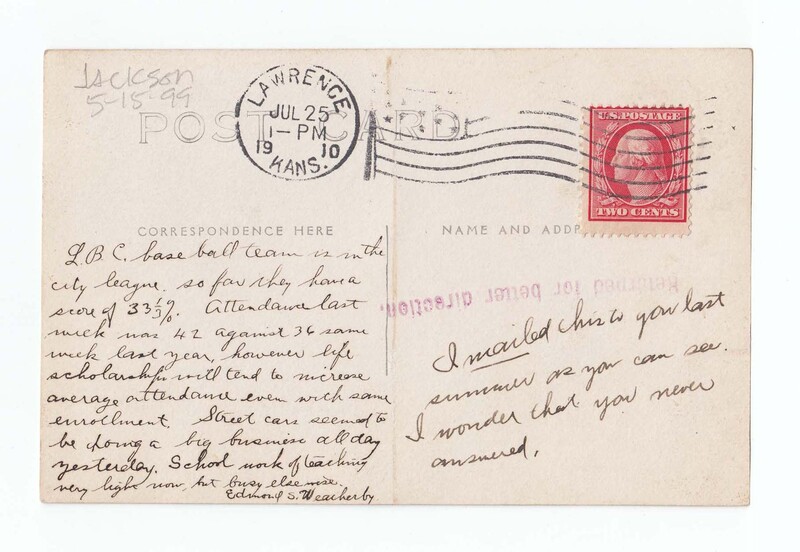 Jackson
5-15-99
POST CARD
LAWRENCE
JUL 25
1-PM
19 10
KANS.
U.S. POSTAGE
TWO CENTS
CORRESPONDENCE HERE
L.B.C. base ball team is in the
city league. so far they have a
score of 33⅓%. Attendance last
week was 42 against 36 same
week last year, however life
scholarships will tend to increase
average attendance even with same
enrollment. Street cars seemed to
be doing a big business all day
yesterday. School work of teaching
very light now, but busy else wise.
Edmond S. Weatherby
NAME AND ADD
Returned for better direction.
I mailed this to you last
summer as you can see.
I wonder that you never
answered.